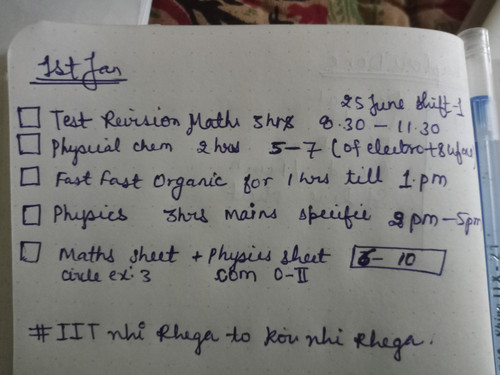 1st Jan
25 June Shift-1
Test Revision Maths 3hrs 8.30 - 11.30
Physical chem 2 hrs 5-7 (of electro +
Fast Fast Organic for 1 hrs till 1.pm
Physics 3hrs mains specific 2pm-5pm
Maths sheet + Physics sheet - 10
circle ex. 3 com O-II
# IIT nhi Rhega to Koi nhi Rhega.